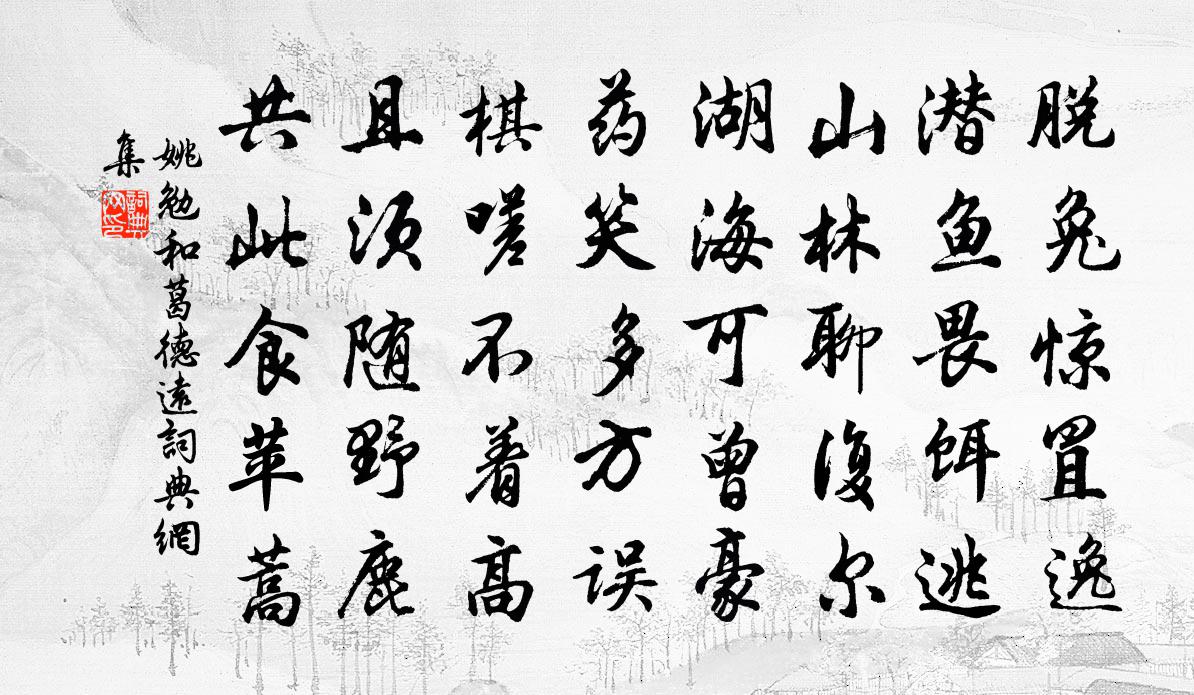 脱兔惊罝逸
潜鱼畏饵逃
山林聊复尔
湖海可曾豪
药笑多方误
棋嗟不着高
且须随野鹿
共此食苹蒿
姚勉和葛德遠詞典網
集
詞典网印